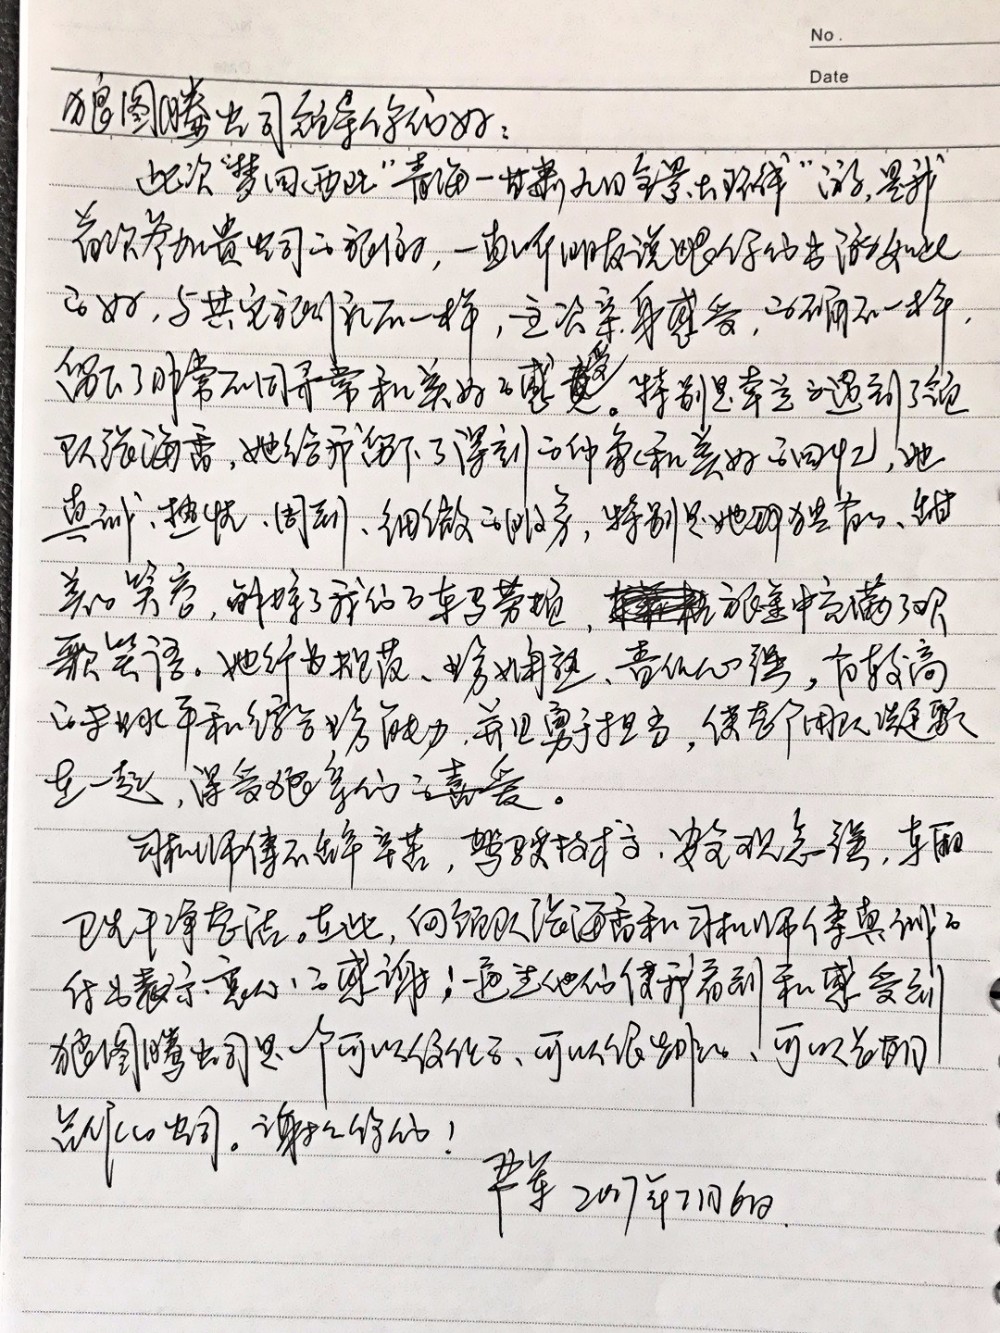 No.
Date
狼图腾公司领导你们好:
此次“梦回西北”青海一甘肃九日全景大环线”游,是我
首次参加贵公司的旅游,一直听朋友说跟你们出游如此
的好,与其它旅行社不一样,这次亲身感受,的确不一样,
留下了非常不同寻常和美好的感受。特别是幸运的遇到了领
队张海霞,她给我留下了深刻的印象和美好的回忆,她
真诚、热忱、周到、细微的服务,特别是她那独有的、甜
美的笑容,解除了我们的车马劳顿,旅途中充满了欢
歌笑语。她行为规范、业务娴熟、责任心强,有较高
的专业水平和综合业务能力,并且勇于担当,使整个团队凝聚
在一起,深受狼亲们的喜爱。
司机师傅不辞辛苦,驾驶技术高、安全观念强,车厢
卫生干净整洁。在此,向领队张海霞和司机师傅真诚的
付出表示衷心的感谢!通过他们使我看到和感受到
狼图腾公司是一个可以信任的、可以依靠的、可以长期
合作的公司。谢谢你们!
2017年7月6日.